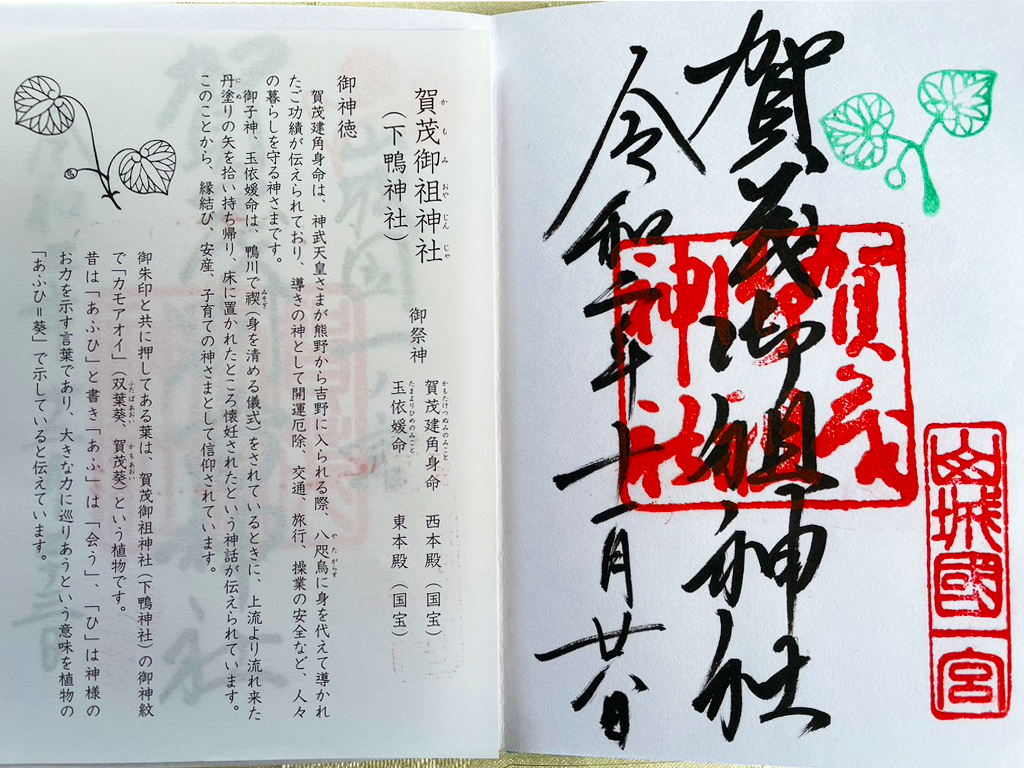 山城國一宮
賀茂御祖神社
賀茂御祖神社
令和二年十一月廿八日
かもみおやじんじゃ
賀茂御祖神社
(下鴨神社)
御祭神
かもたけつぬみのみこと
賀茂建角身命 西本殿(国宝)
たまよりひめのみこと
玉依媛命 東本殿(国宝)
御神徳
やたがらす
賀茂建角身命は、神武天皇さまが熊野から吉野に入られる際、八咫烏に身を代えて導かれ
たご功績が伝えられており、導きの神として開運厄除、交通、旅行、操業の安全など、人々
の暮らしを守る神さまです。
みそぎ
御子神、玉依媛命は、鴨川で禊(身を清める儀式)をされているときに、上流より流れ来た
にぬ
丹塗りの矢を拾い持ち帰り、床に置かれたところ懐妊されたという神話が伝えられています。
このことから、縁結び、安産、子育ての神さまとして信仰されています。
御朱印と共に押してある葉は、賀茂御祖神社(下鴨神社)の御神紋
ふたばあおい かもあおい
で「カモアオイ」(双葉葵、賀茂葵)という植物です。
昔は「あふひ」と書き「あふ」は「会う」、「ひ」は神様の
お力を示す言葉であり、大きな力に巡りあうという意味を植物の
「あふひ＝葵」で示していると伝えています。